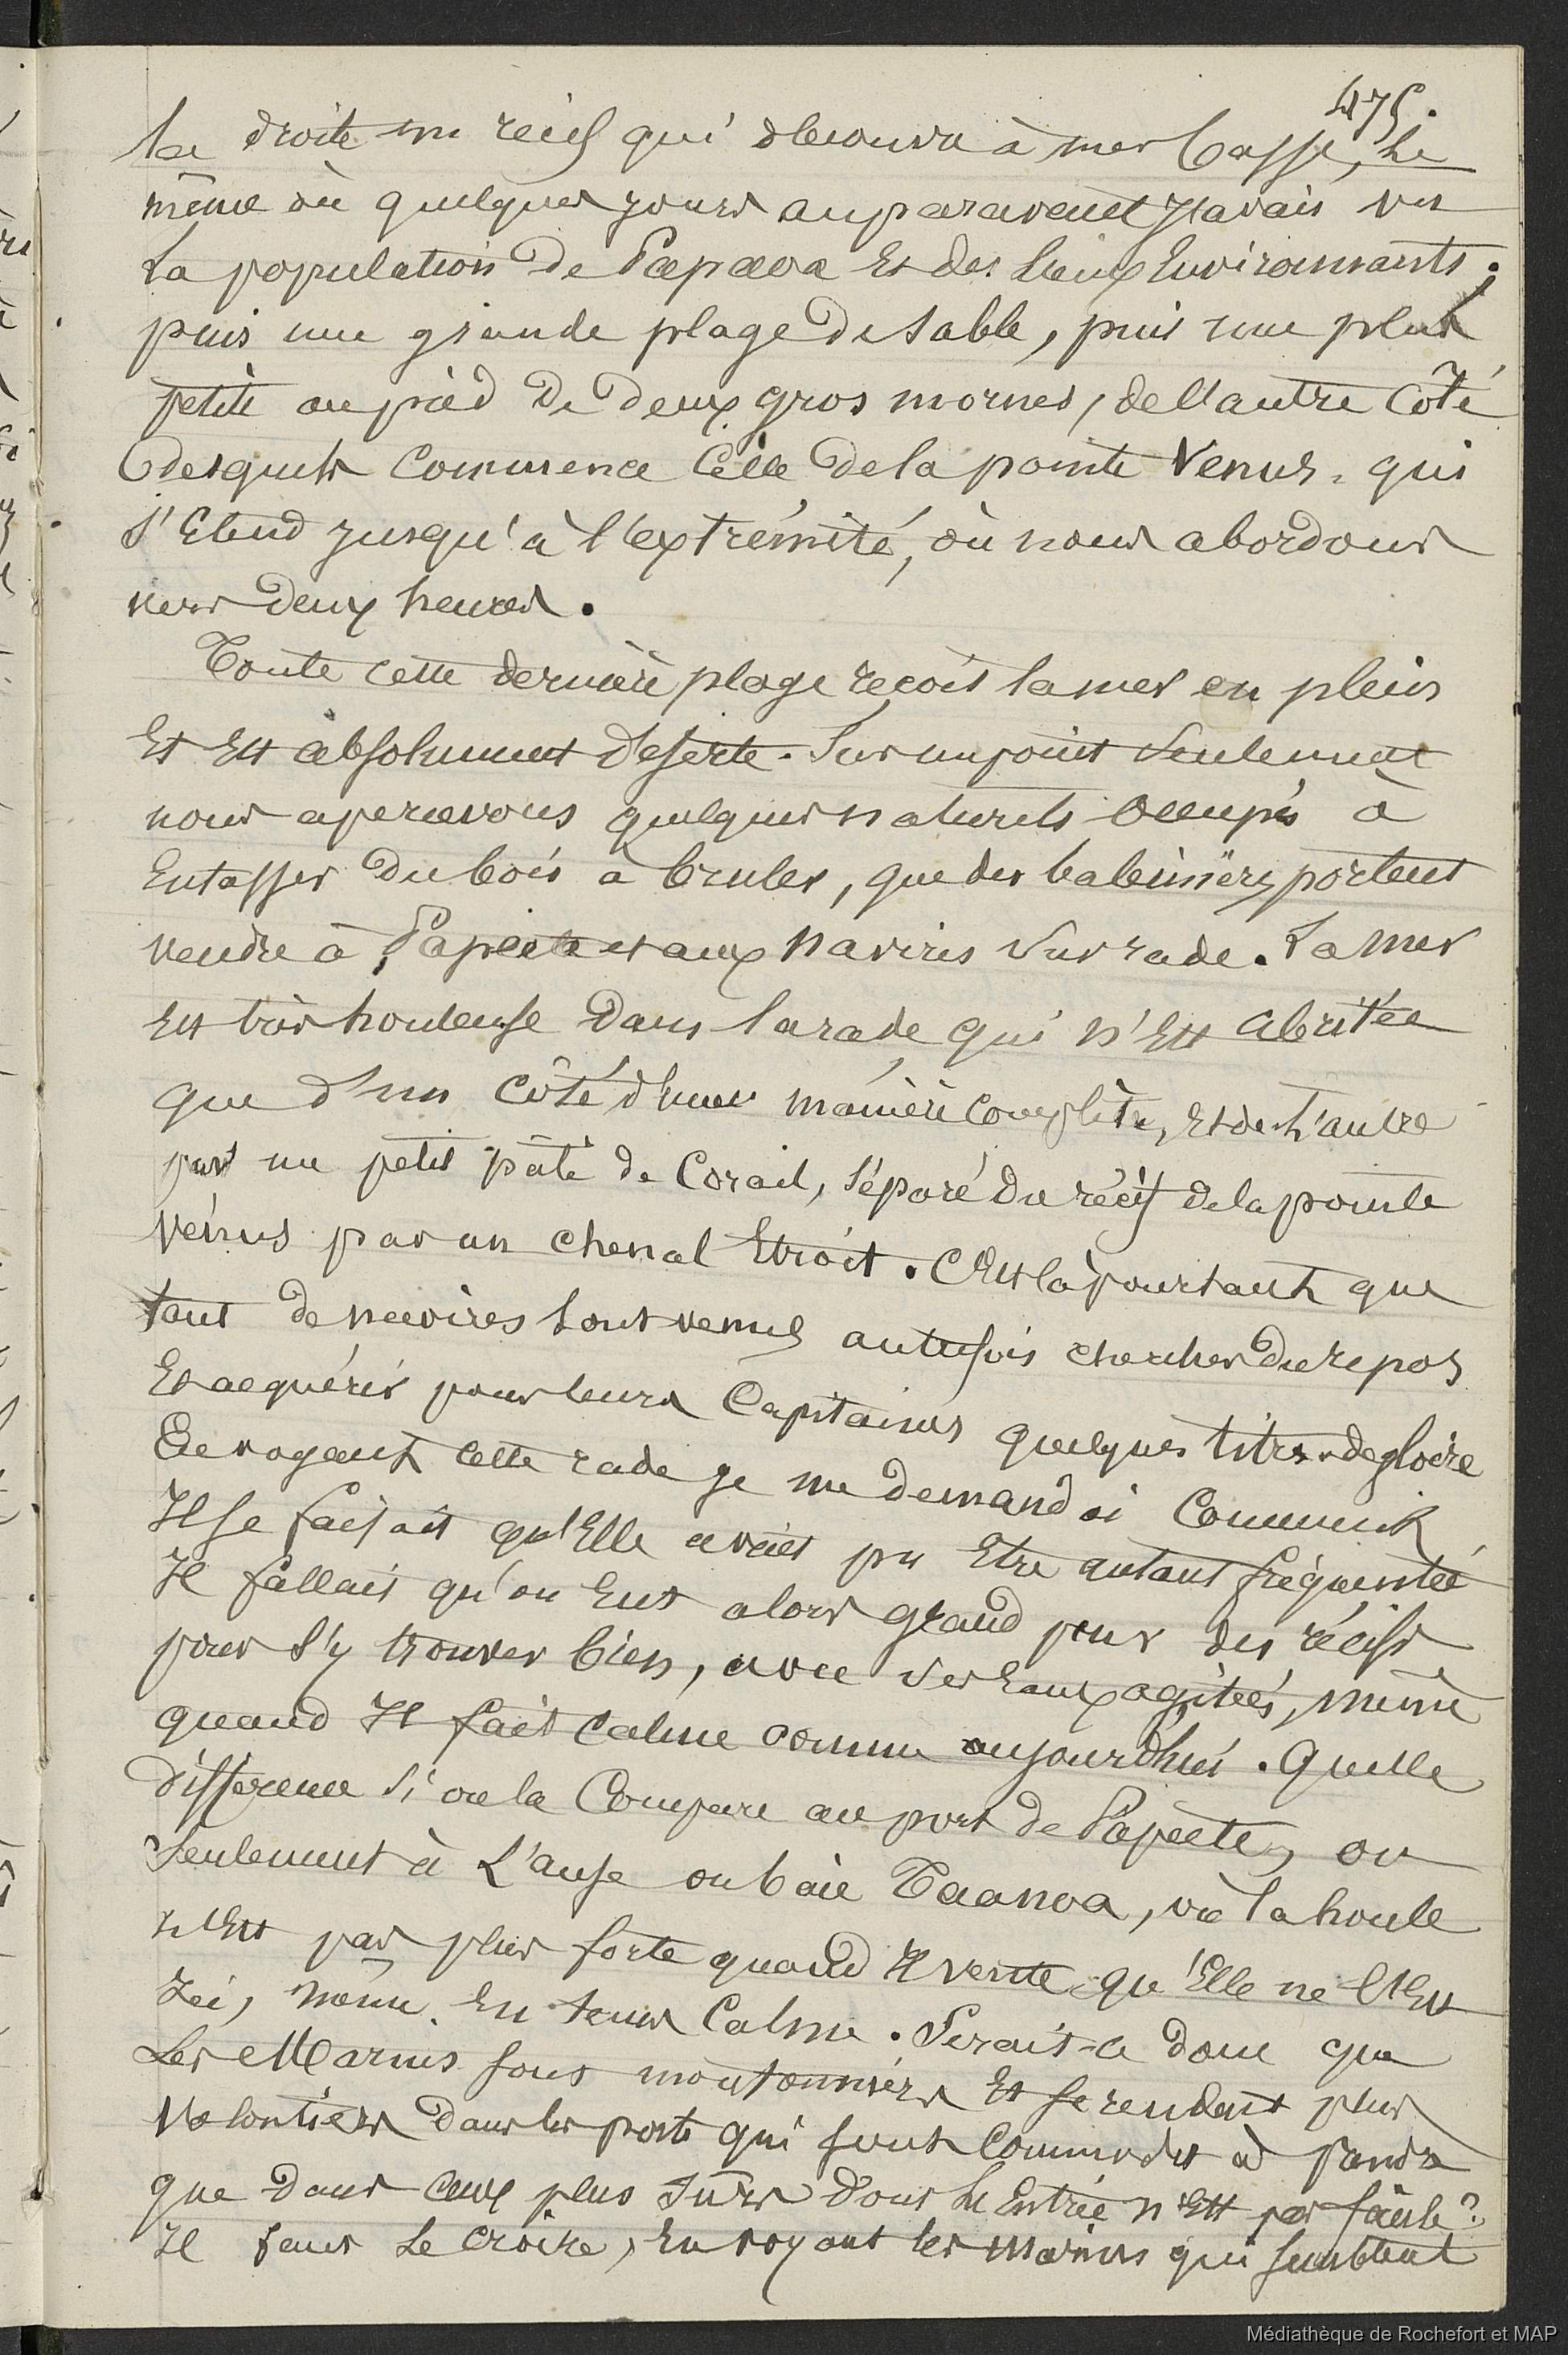 475.
la droite un récif qui découvre à mer basse, le
même où quelques jours auparavent j'avais vu
la population de Papaoa Et des lieux Environnants;
puis une grande plage de sable, puis une plus
petite au pied de deux gros mornes, de l'autre Côté
desquels Commence Celle de la pointe Venus, qui
s'Etend jusqu'à l'extrémité, où nous abordons
vers deux heures.
Toute cette dernière plage reçoit la mer en plein
Et Est absolument déserte. Sur un point seulement
nous apercevons quelques naturels occupés à
Entasser du bois à bruler, que des baleinières portent
vendre à Papeete et aux navires sur rade. La mer
Est très houleuse dans la rade qui n'Est abritée
que d'un Côté d'une manière Complète, Et de l'autre
par un petit pâté de Corail, séparé du récif de la pointe
Vénus par un chenal Etroit. C'Est là pourtant que
tant de navires sont venus autrefois chercher du repos
Et acquérir pour leurs Capitaines quelques titres de gloire
En voyant cette rade je me demandai Comment
Il se faisait qu'Elle avait pu Etre autant fréquentée
Il fallait qu'on Eut alors grand peur des récifs
pour s'y trouver bien, avec ses Eaux agitées, même
quand Il fait Calme comme aujourdhui. Quelle
différence si on la Compare au port de Papeete, ou
seulement à L'anse ou baie Taanoa, où la houle
n'Est pas plus forte quand Il vente qu'Elle ne l'Est
Ici, même En tems Calme. Serait-ce donc que
Les Marins sont moutonniers Et se rendent plus
volontiers dans les ports qui sont Commodes à prendre
que dans Ceux plus surs dont L'Entrée n'Est pas facile?
Il faut Le croire, En voyant les marins qui semblent
Médiathèque de Rochefort et MAP